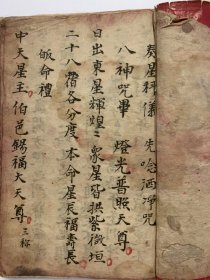 祭星科儀　先唸洒淨咒
八神咒畢　燈光普照天尊
日出東星輝煌　衆星皆拱紫微垣
二十八宿各分度　本命星辰福壽長
皈命禮
中天星王　伯邑錫福大天尊　三稱